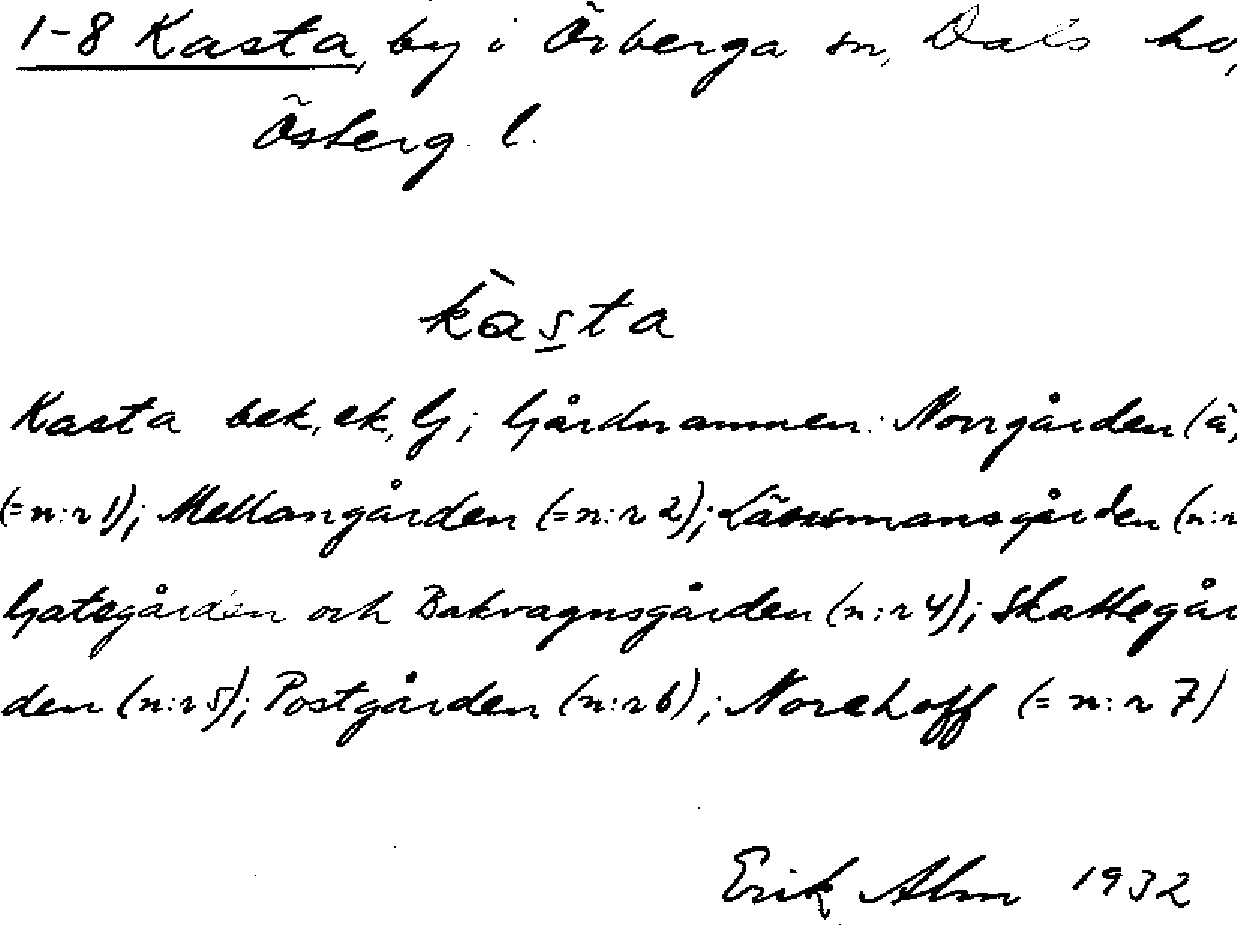 1-8 Kasta, by i Örberga sn, Dals hd,
Österg. l.
kàs̲ta
Kasta bek, ek, Gj; Gårdnamnen: Norrgården (ä,
(=n:r 1); Mellangården (=n:r 2); Länsmansgården (n:r
Gatsgården och Bakvagnsgården (n:r 4); Skattegår
den (n:r 5); Postgården (n:r 6); Norehoff (= n:r 7)
Erik Alm 1932